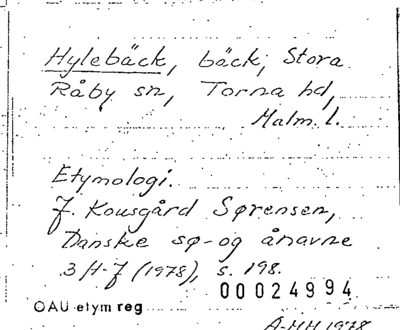 Hylebäck, bäck; Stora
Råby sn, Torna hd,
Malm. l.
Etymologi.
J. Kousgård Sørensen,
Danske sø- og ånavne
3 H-J (1978), s. 198.
00024994
OAU etym reg
A-HH 1978